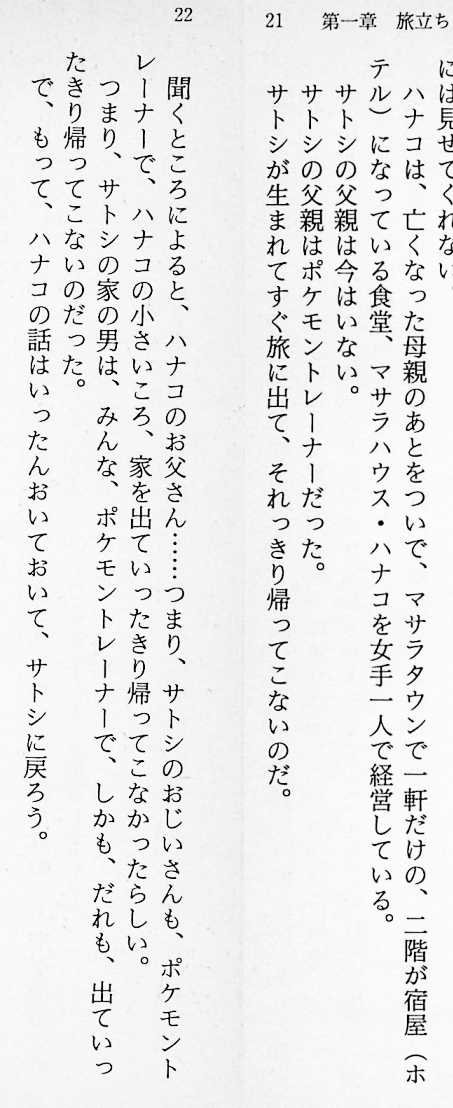 21　第一章　旅立ち
には見せてくれない。
ハナコは、亡くなった母親のあとをついで、マサラタウンで一軒だけの、二階が宿屋（ホ
テル）になっている食堂、マサラハウス・ハナコを女手一人で経営している。
サトシの父親は今はいない。
サトシの父親はポケモントレーナーだった。
サトシが生まれてすぐ旅に出て、それっきり帰ってこないのだ。
22
聞くところによると、ハナコのお父さん……つまり、サトシのおじいさんも、ポケモント
レーナーで、ハナコの小さいころ、家を出ていったきり帰ってこなかったらしい。
つまり、サトシの家の男は、みんな、ポケモントレーナーで、しかも、だれも、出ていっ
たきり帰ってこないのだった。
で、もって、ハナコの話はいったんおいておいて、サトシに戻ろう。